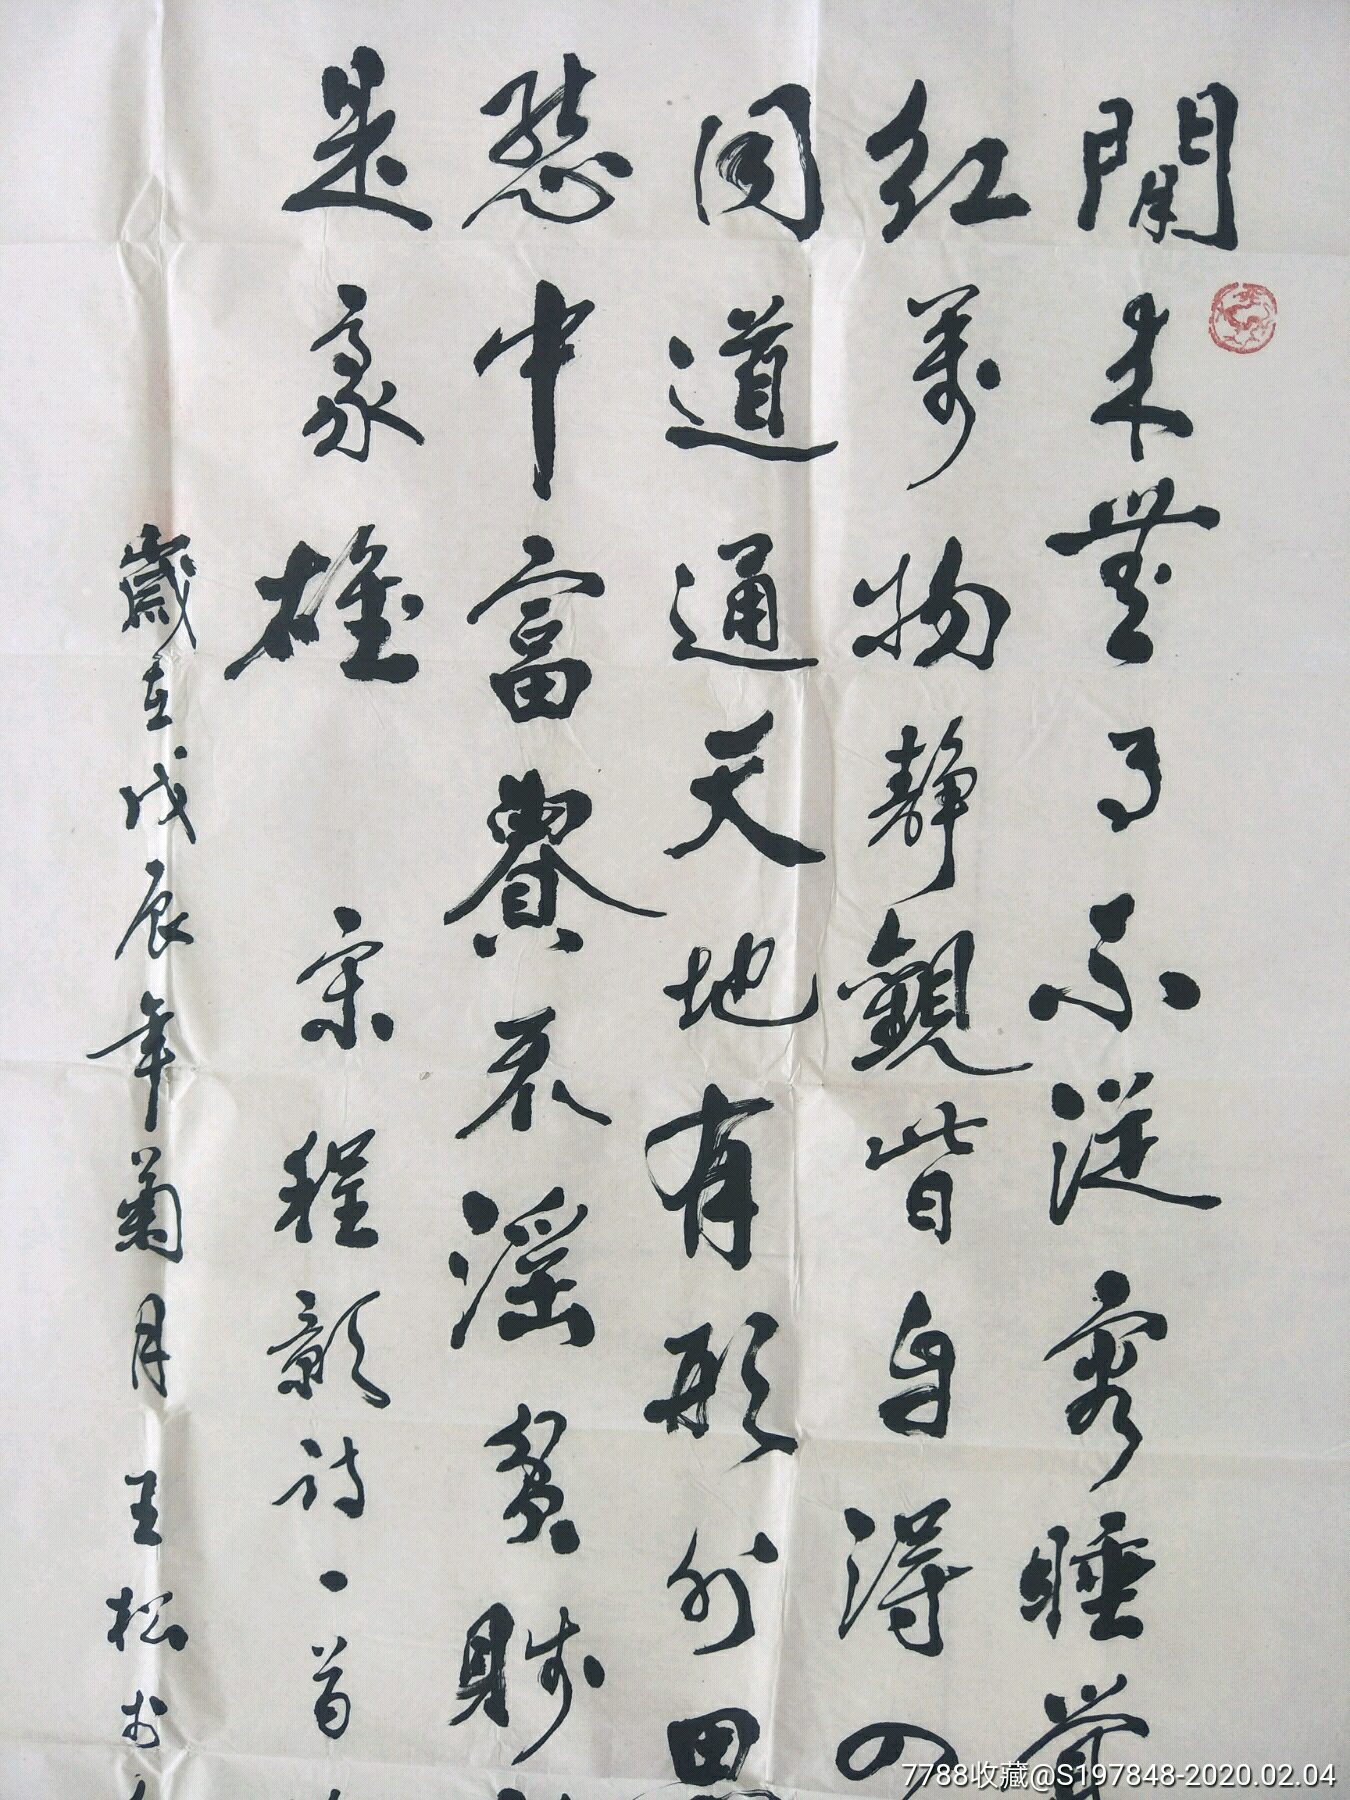 閒来無事不從容睡覺
红萬物靜觀皆自得四
同道通天地有形外思
態中富貴不淫貧賤
是豪雄 宋程顥诗一首
歲在戊辰年菊月王松於
7788收藏@S197848-2020.02.04